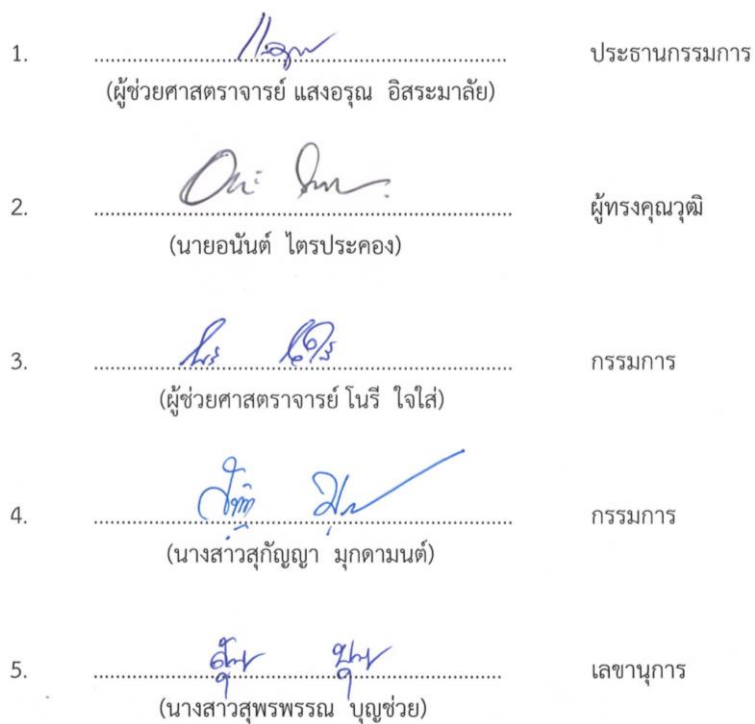 1. ................................................ ประธานกรรมการ
(ผู้ช่วยศาสตราจารย์ แสงอรุณ อิสระมาลัย)
2. ................................................ ผู้ทรงคุณวุฒิ
(นายอนันต์ ไตรประคอง)
3. ................................................ กรรมการ
(ผู้ช่วยศาสตราจารย์ โนรี ใจใส่)
4. ................................................ กรรมการ
(นางสาวสุกัญญา มุกดามนต์)
5. ................................................ เลขานุการ
(นางสาวสุพรพรรณ บุญช่วย)